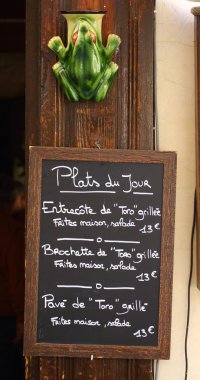 Plats du Jour
Entrecôte de "Toro" grillée
Frites maison, salade
13€
Brochette de "Toro" grillée
Frites maison, salade
13€
Pavé de "Toro" grillé
Frites maison, salade
13€